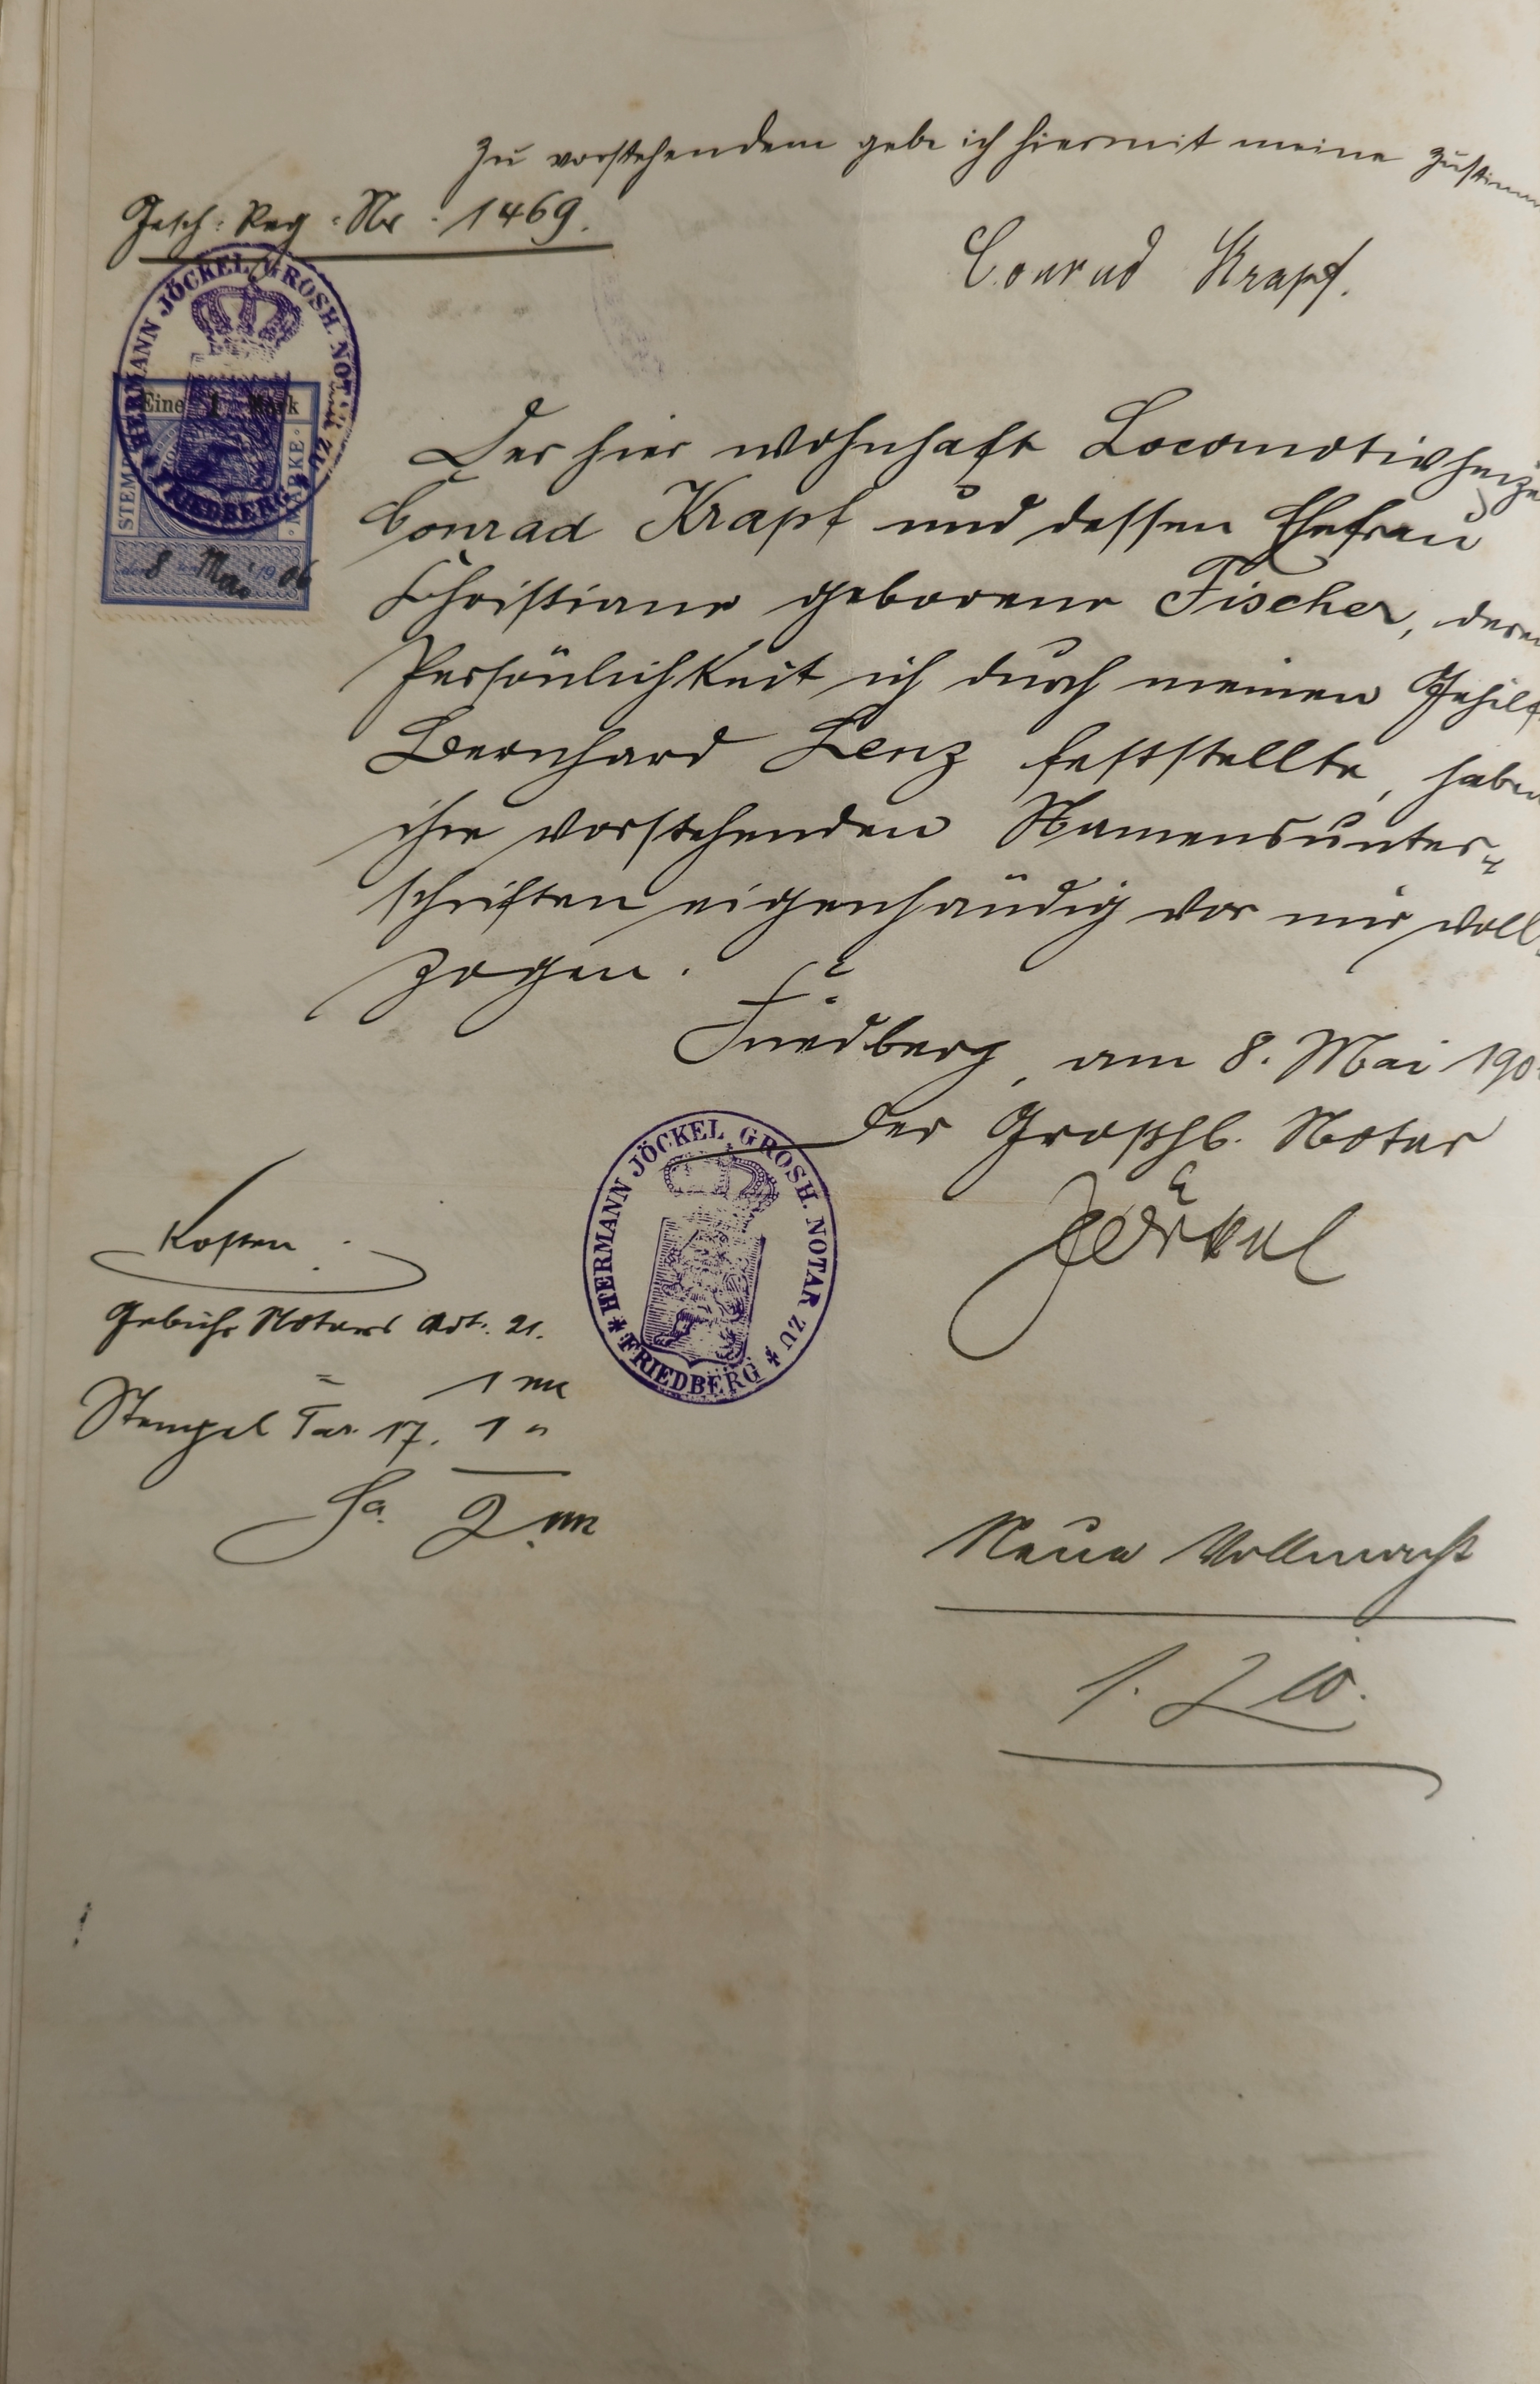 Zu vorstehendem gebe ich hiermit meine Zustimm
Gesch. Reg. Nr. 1469.
Conrad Krapf.
HERMANN JÖCKEL GROSH. NOTAR ZU FRIEDBERG
Eine 1 Mark
STEMPEL MARKE
den 8 ten Mai 1906
Der hier wohnhaft Locomotivheize
Conrad Krapf und dessen Ehefrau
Christiane geborene Fischer, deren
Persönlichkeit ich durch meinen Gehilf
Bernhard Lenz feststellte, haben
ihre vorstehenden Namensunter-
schriften eigenhändig vor mir voll-
zogen.
Friedberg, am 8. Mai 190
Der Großhb. Notar
Jöckel
HERMANN JÖCKEL GROSH. NOTAR ZU
FRIEDBERG
Kosten.
Gebühr Notars Art. 21.
= 1 M
Stempel Tar. 17. 1 "
Sa. 2 M
Neue Vollmacht